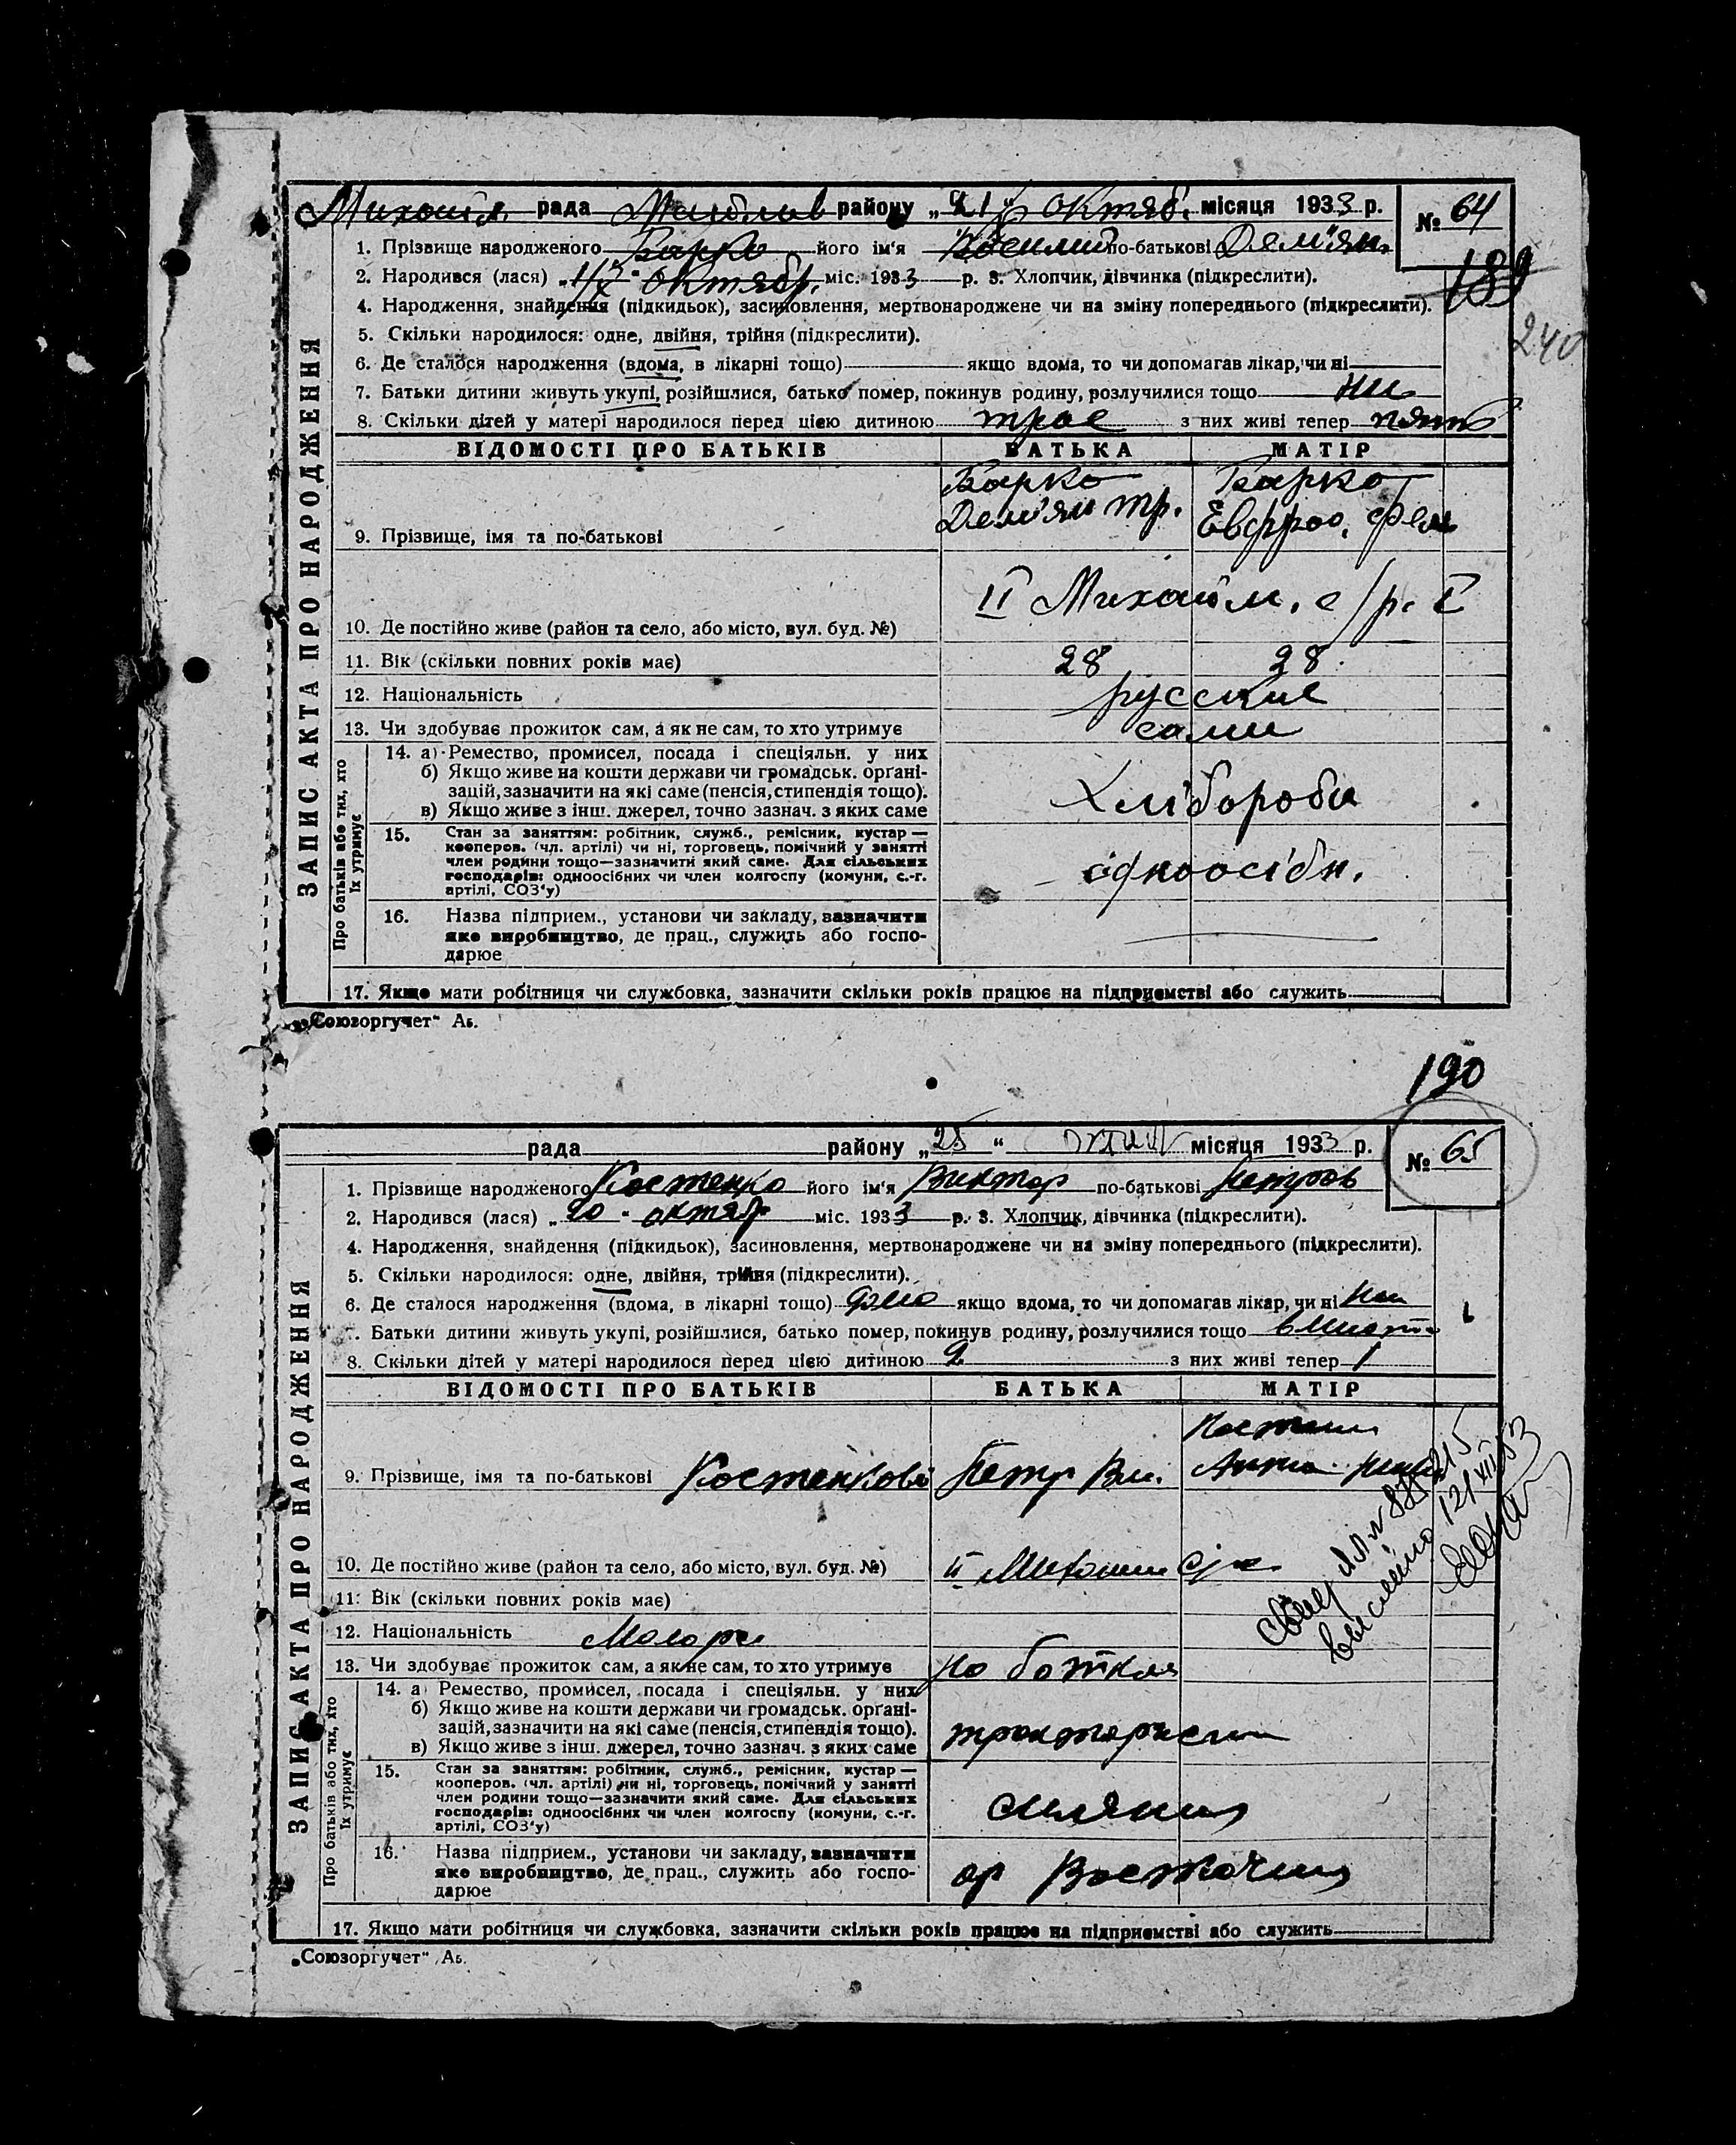 рада району „21“ октяб. місяця 1933 р.
№ 64
1. Прізвище народженого Барко його ім'я Василий по-батькові Дем'ян.
189
2. Народився (лася) октябр. міс. 1933 р. 3. Хлопчик, дівчинка (підкреслити).
4. Народження, знайдення (підкидьок), засиновлення, мертвонароджене чи на зміну попереднього (підкреслити).
240
5. Скільки народилося: одне, двійня, трійня (підкреслити).
6. Де сталося народження (вдома, в лікарні тощо) якщо вдома, то чи допомагав лікар, чи ні
7. Батьки дитини живуть укупі, розійшлися, батько помер, покинув родину, розлучилися тощо
8. Скільки дітей у матері народилося перед цією дитиною трое з них живі тепер
ВІДОМОСТІ ПРО БАТЬКІВ БАТЬКА МАТІР
Барко Барко
Дем'ян Тр. Евфрос.
9. Прізвище, імя та по-батькові
10. Де постійно живе (район та село, або місто, вул. буд. №) II Михайл. с/р.
11. Вік (скільки повних років має) 28 28
12. Національність русские
13. Чи здобуває прожиток сам, а як не сам, то хто утримує сами
14. а) Ремество, промисел, посада і спеціяльн. у них
б) Якщо живе на кошти держави чи громадськ. орґані-
зацій, зазначити на які саме (пенсія, стипендія тощо).
в) Якщо живе з інш. джерел, точно зазнач. з яких саме
Хлібороби
15. Стан за заняттям: робітник, служб., ремісник, кустар —
кооперов. (чл. артілі) чи ні, торговець, помічний у занятті
член родини тощо—зазначити який саме. Для сільських
господарів: одноосібних чи член колгоспу (комуни, с.-г.
артілі, СОЗ'у)
одноосібн.
16. Назва підприєм., установи чи закладу, зазначити
яке виробництво, де прац., служить або госпо-
дарює
17. Якщо мати робітниця чи службовка, зазначити скільки років працює на підприємстві або служить
ЗАПИС АКТА ПРО НАРОДЖЕННЯ
Про батьків або тих, хто
їх утримує
„Союзоргучет“ Аб.
190
рада району „25“ місяця 1933 р.
№ 65
1. Прізвище народженого Костенко його ім'я Виктор по-батькові Петров
2. Народився (лася) „20“ октяб міс. 1933 р. 3. Хлопчик, дівчинка (підкреслити).
4. Народження, знайдення (підкидьок), засиновлення, мертвонароджене чи на зміну попереднього (підкреслити).
5. Скільки народилося: одне, двійня, трійня (підкреслити).
6. Де сталося народження (вдома, в лікарні тощо) якщо вдома, то чи допомагав лікар, чи ні
7. Батьки дитини живуть укупі, розійшлися, батько помер, покинув родину, розлучилися тощо
8. Скільки дітей у матері народилося перед цією дитиною 2 з них живі тепер 1
ВІДОМОСТІ ПРО БАТЬКІВ БАТЬКА МАТІР
9. Прізвище, імя та по-батькові Петр
10. Де постійно живе (район та село, або місто, вул. буд. №) II
11. Вік (скільки повних років має)
12. Національність
13. Чи здобуває прожиток сам, а як не сам, то хто утримує
14. а) Ремество, промисел, посада і спеціяльн. у них
б) Якщо живе на кошти держави чи громадськ. орґані-
зацій, зазначити на які саме (пенсія, стипендія тощо).
в) Якщо живе з інш. джерел, точно зазнач. з яких саме
15. Стан за заняттям: робітник, служб., ремісник, кустар —
кооперов. (чл. артілі) чи ні, торговець, помічний у занятті
член родини тощо—зазначити який саме. Для сільських
господарів: одноосібних чи член колгоспу (комуни, с.-г.
артілі, СОЗ'у)
16. Назва підприєм., установи чи закладу, зазначити
яке виробництво, де прац., служить або госпо-
дарює
17. Якщо мати робітниця чи службовка, зазначити скільки років працює на підприємстві або служить
ЗАПИС АКТА ПРО НАРОДЖЕННЯ
Про батьків або тих, хто
їх утримує
„Союзоргучет“ Аб.